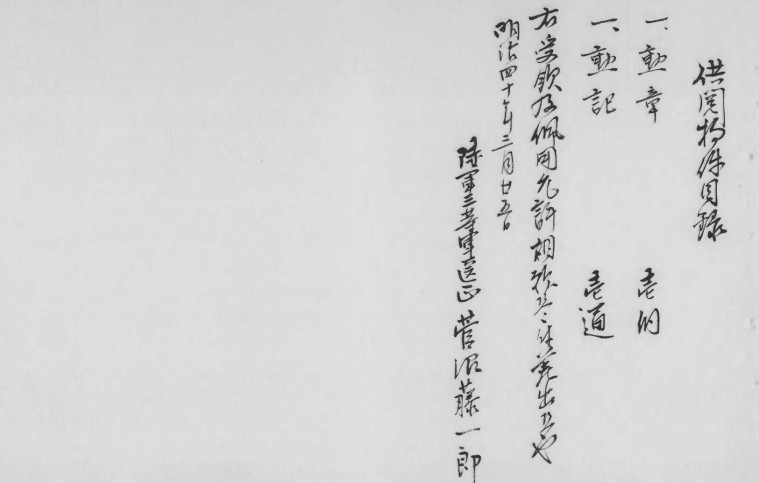 供閲物件目録
一、勲章 壱個
一、勲記 壱道
右受領及佩用允許相願度此段願出候也
明治四十年三月廿五日
陸軍三等軍医正 菅沼藤一郎